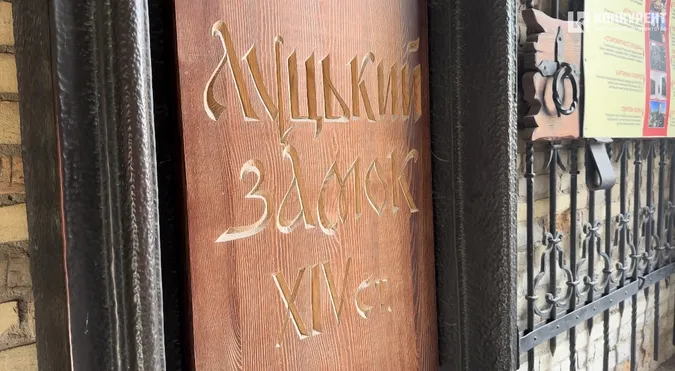 Луцький
замок
XIV ст.
КОНКУРЕНТ